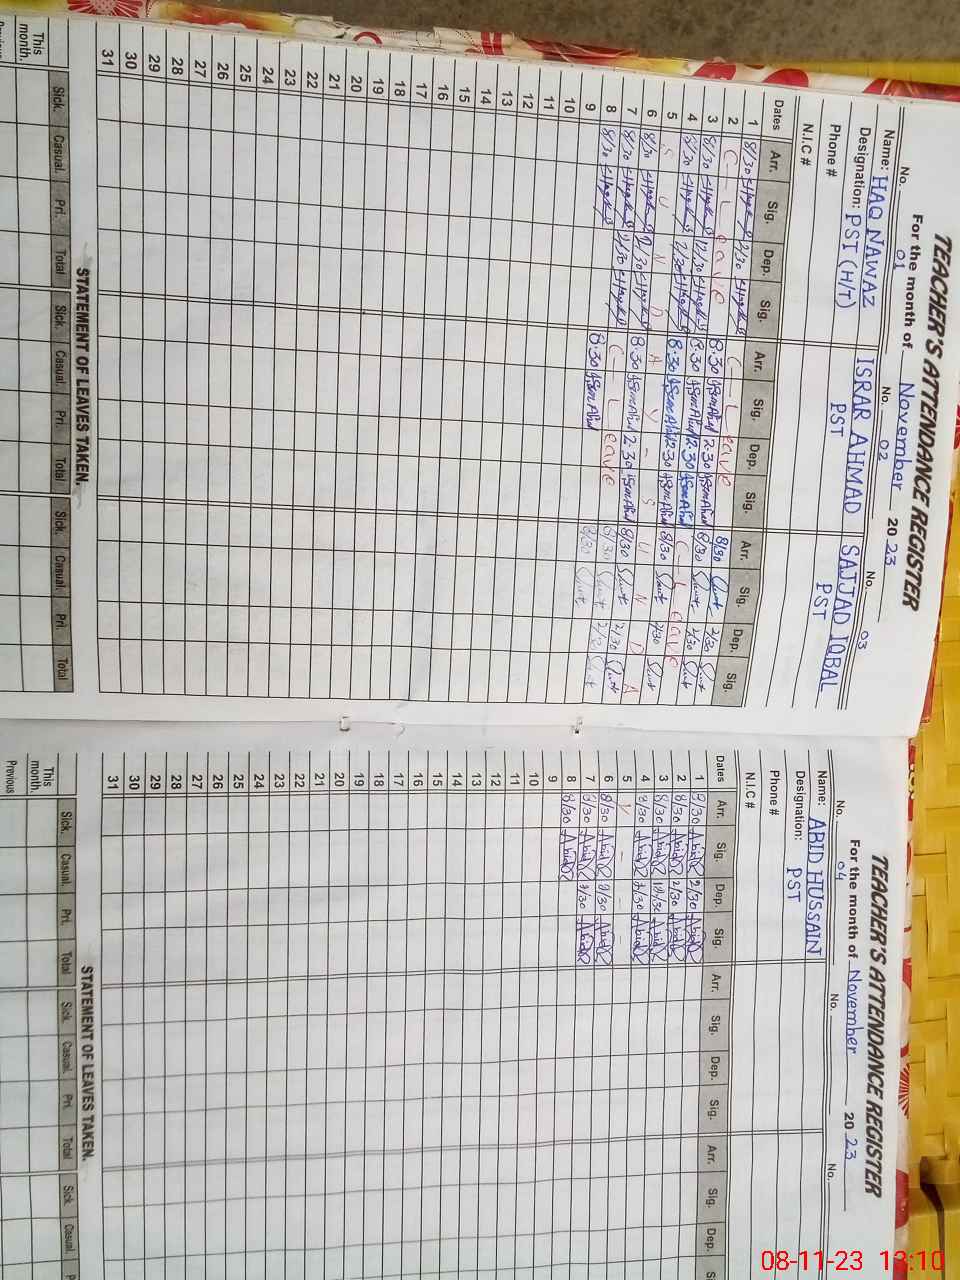 TEACHER'S ATTENDANCE REGISTER
For the month of November 2023
No. 01 No. 02 No. 03
Name: HAQ NAWAZ ISRAR AHMAD SAJJAD IQBAL
Designation: PST (H/T) PST PST
Phone #
N.I.C #
Dates Arr. Sig. Dep. Sig. Arr. Sig. Dep. Sig. Arr. Sig. Dep. Sig.
1 8/30 2/30 C-Leave 8/30 2/30
2 C-Leave 8.30 2.30 8/30 2/30
3 8/30 12/30 8.30 12.30 C-Leave
4 8/30 2/30 8.30 2.30 8/30 2/30
5 S U N D A Y - S U N D A
6 8/30 2/30 8.30 2.30 8/30 2/30
7 8/30 2/30 C-Leave 8/30 2/30
8 8/30 8.30 8/30
9
10
11
12
13
14
15
16
17
18
19
20
21
22
23
24
25
26
27
28
29
30
31
STATEMENT OF LEAVES TAKEN.
Sick. Casual. Pri. Total Sick. Casual. Pri. Total Sick. Casual. Pri. Total
This month.
Previous
TEACHER'S ATTENDANCE REGISTER
For the month of November 2023
No. 04 No. No.
Name: ABID HUSSAIN
Designation: PST
Phone #
N.I.C #
Dates Arr. Sig. Dep. Sig. Arr. Sig. Dep. Sig. Arr. Sig. Dep. Sig.
1 8/30 Abid 2/30 Abid
2 8/30 Abid 2/30 Abid
3 8/30 Abid 12/30 Abid
4 8/30 Abid 2/30 Abid
5 Y - - -
6 8/30 Abid 2/30 Abid
7 8/30 Abid 2/30 Abid
8 8/30 Abid
9
10
11
12
13
14
15
16
17
18
19
20
21
22
23
24
25
26
27
28
29
30
31
STATEMENT OF LEAVES TAKEN.
Sick. Casual. Pri. Total Sick. Casual. Pri. Total Sick. Casual.
This month.
Previous
08-11-23 13:10